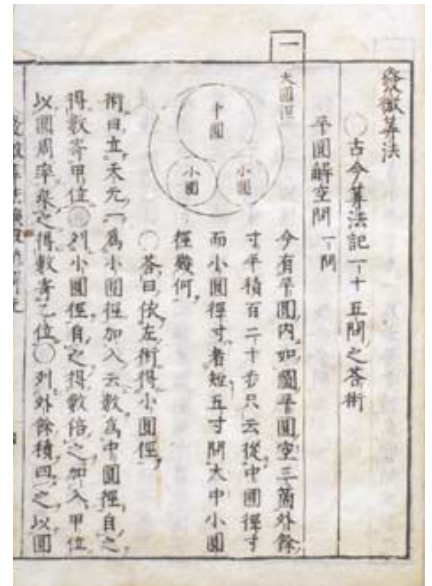 發微算法
○古今算法記一十五問之答術
平圓解空問 一問
一
大圓徑
中圓
小圓
小圓
今有平圓内如圖平圓空三箇外餘
寸平積百二十歩只云從中圓徑寸
而小圓徑寸者短五寸問大中小圓
徑幾何
○答曰依左術得小圓徑
術曰立天元一爲小圓徑加入云數爲中圓徑自之
得數寄甲位○列小圓徑自之得數倍之加入甲位
以圓周率乗之得數寄乙位○列外餘積四之以圓